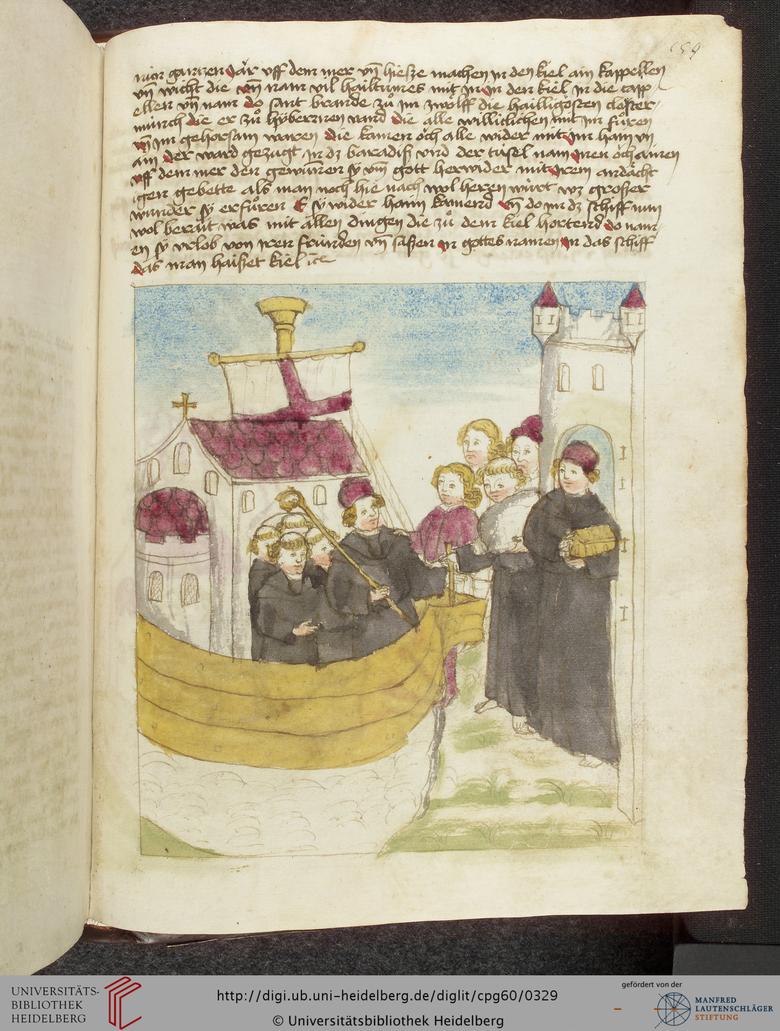 nún gantzen Jär vff dem mer vn̄ hiesze machen in den kiel ain kappellen
vn̄ wicht die vn̄ nam vil hailtumes mit im in den kiel in die capp
ellen vn̄ nam do sant brande zů im zwölff die hailligosten closter
münch die er zů hybernien vand die alle williclichen mit im fůren
vn̄ im gehorsam waren die kamen öch alle wider mit im haim vn̄
ain der ward gezugt in dz baradis vnd der tüfel nam inen öch ainen
vff dem mer den gewunnen sy vm gott herwider mit irem andächt
igen gebette als man noch hie nach wol herren wirt wz groszer
wunder sy erfůren E sy wider haim kamend vn̄ do im dz schiff nun
wol berait was mit allen dingen die zů dem kiel hortend do nam
en sy vrlob von iren fründen vn̄ saszen in gottes namen in das schiff
das man haiszet kiel
59
UNIVERSITÄTS-
BIBLIOTHEK
HEIDELBERG
http://digi.ub.uni-heidelberg.de/diglit/cpg60/0329
© Universitätsbibliothek Heidelberg
gefördert von der
MANFRED
LAUTENSCHLÄGER
STIFTUNG